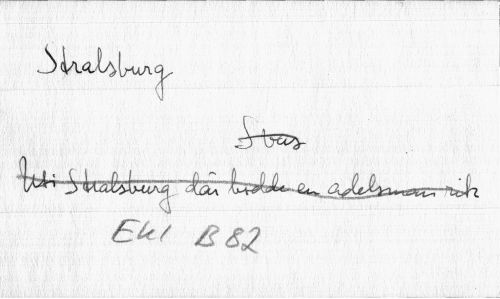 Stralsburg
Uti Stralsburg där bodde en adelsman rik
EKl B 82